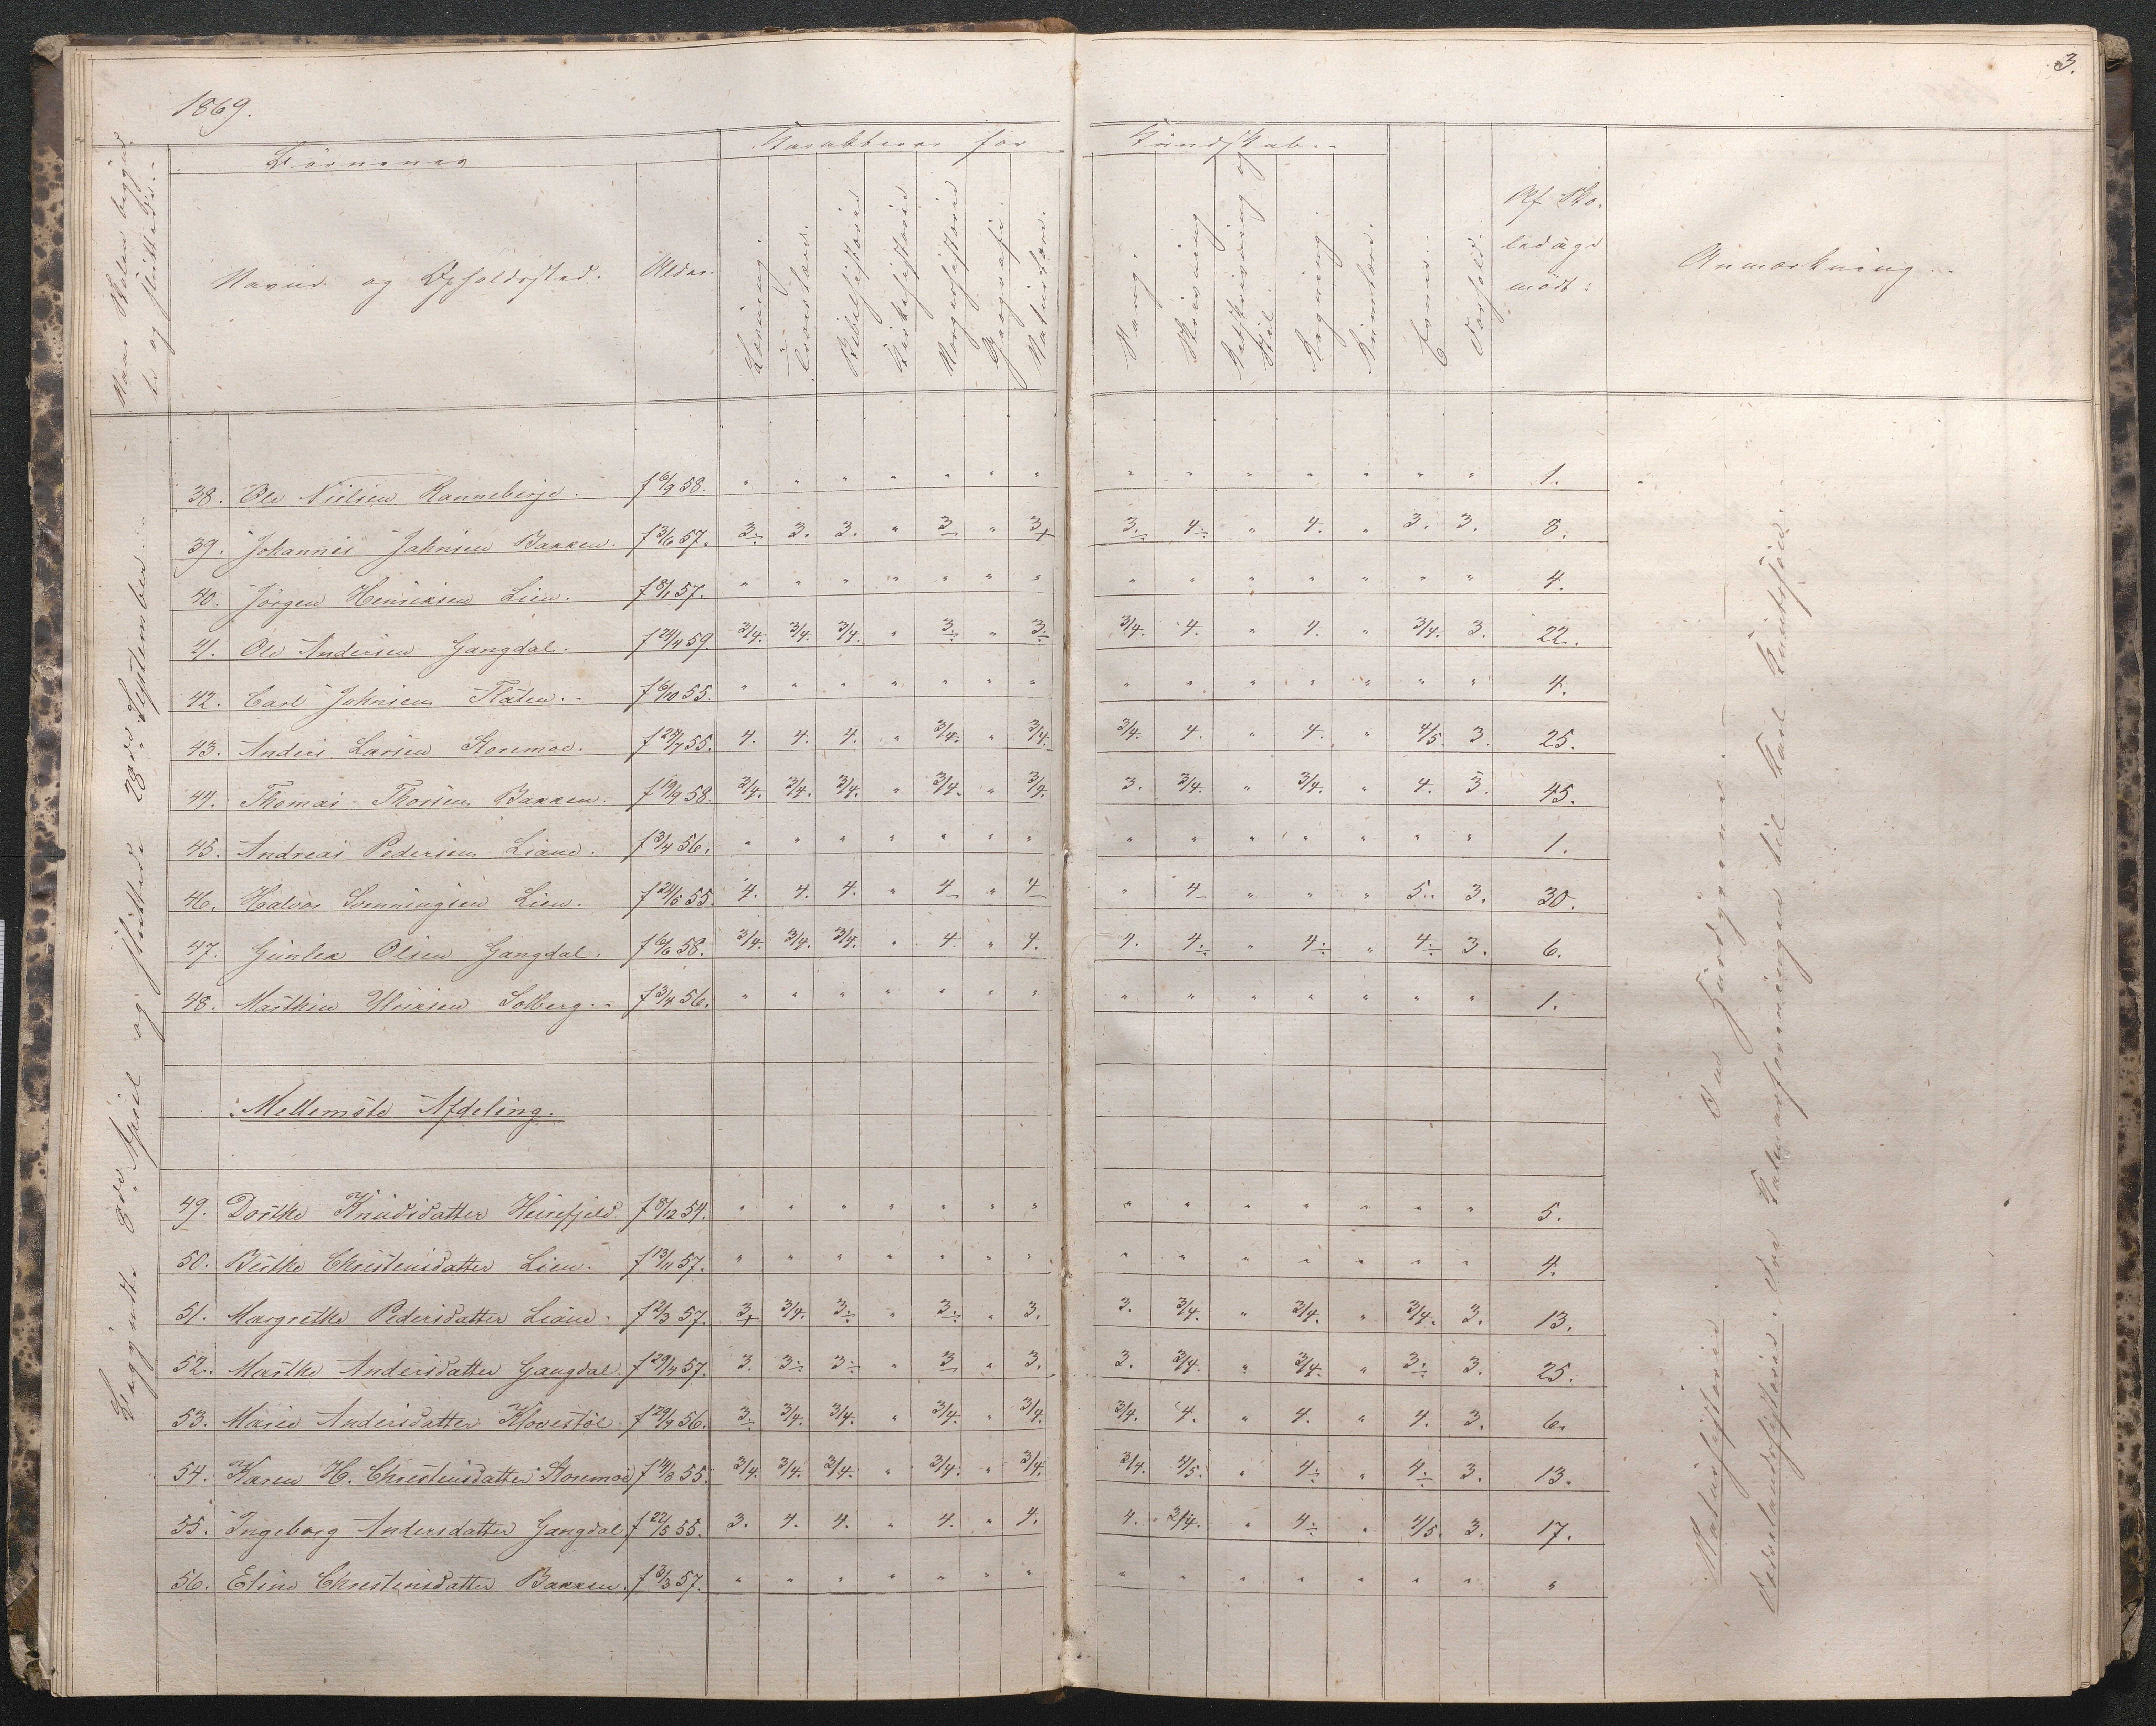 3.
1869.
Naar Skolen begyndte og sluttede.
Börnenes
Karakterer for Kundskab.
Navne og Opholdssted.
Alder.
Læsning.
Troeslære.
Bibelhistorie
Kirkehistorie
Norgeshistorie
Geografi.
Naturlære.
Sang.
Skrivning
Retskrivning og Stil.
Regning
Evner.
Forhold.
Af Skoledage mödt:
Anmærkning.
Begyndte April og sluttede 28de September.
38. Ole Nielsen Ranneberge. f 6/9 58. " " " " " " " " " " " " " " 1.
39. Johannes Jahnsen Bakken. f 3/6 57. 3÷ 3. 3. " 3 " 3+ 3÷ 4÷ " 4. " 3. 3. 8.
40. Jörgen Henriksen Lien. f 8/1 57. " " " " " " " " " " " " " " 4.
41. Ole Andersen Gangdal. f 24/4 59. 3/4. 3/4. 3/4. " 3÷ " 3÷ 3/4. 4. " 4. " 3/4. 3. 22.
42. Carl Johnsen Flaten. f 6/10 55. " " " " " " " " " " " " " " 4.
43. Anders Larsen Storemoe. f 27/7 55. 4. 4. 4. " 3/4. " 3/4. 3/4. 4. " 4. " 4/5. 3. 25.
44. Thomas Thorsen Bakken. f 19/9 58. 3/4. 3/4. 3/4. " 3/4. " 3/4. 3. 3/4. " 3/4. " 4. 3. 45.
45. Andreas Pedersen Liane. f 3/4 56. " " " " " " " " " " " " " " 1.
46. Halvor Svenningsen Lien. f 24/5 55. 4. 4. 4. " 4 " 4 " 4 " " " 5. 3. 30.
47. Gunlek Olsen Gangdal. f 6/6 58. 3/4. 3/4. 3/4. " 4. " 4. 4. 4÷ " 4÷ " 4÷ 3. 6.
48. Mathien Ulriksen Solberg. f 3/4 56. " " " " " " " " " " " " " " 1.
Mellemste Afdeling.
49. Dorthe Knudsdatter Heirefjeld. f 8/12 54. " " " " " " " " " " " " " " 5.
50. Berthe Christensdatter Lien. f 13/11 57. " " " " " " " " " " " " " " 4.
51. Margrethe Pedersdatter Liane. f 2/3 57. 3+ 3/4. 3÷ " 3÷ " 3. 3. 3/4. " 3/4. " 3/4. 3. 13.
52. Marthe Andersdatter Gangdal. f 29/4 57. 3. 3÷ 3÷ " 3 " 3. 3. 3/4. " 3/4. " 3÷ 3. 25.
53. Marie Andersdatter Klovestöl. f 29/9 56. 3÷ 3/4. 3/4. " 3/4. " 3/4. 3/4. 4. " 4. " 4. 3. 6.
54. Karen H. Christensdatter Storemoe f 14/8 55. 3/4. 3/4. 3/4. " 3/4. " 3/4. 3/4. 4/5. " 4÷ " 4÷ 3. 13.
55. Ingeborg Andersdatter Gangdal f 22/5 55. 3. 4. 4. " 4. " 4. 4. 3/4. " 4÷ " 4/5. 3. 17.
56. Eline Christensdatter Bakken. f 3/3 57. " " " " " " " " " " " " " " "
Naturhistorie.
Fædrelandshistorie. Fra til